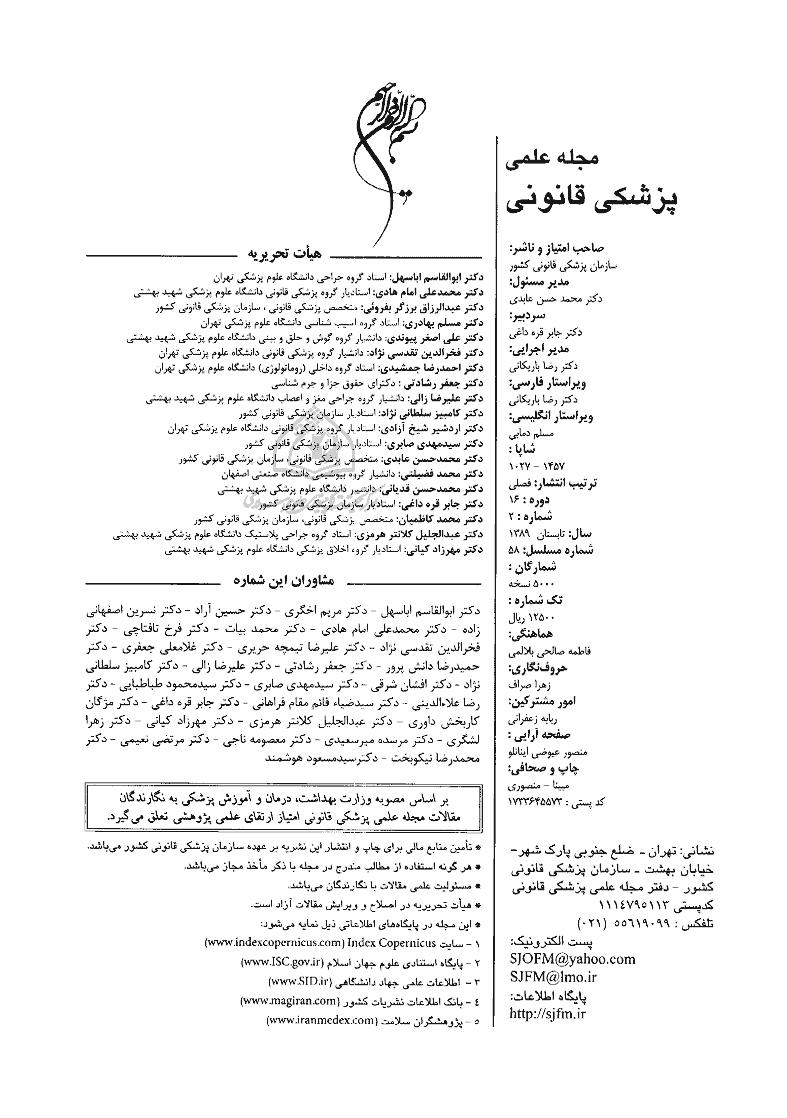 بسم الله الرحمن الرحیم
مجله علمی
پزشکی قانونی
صاحب امتیاز و ناشر:
سازمان پزشکی قانونی کشور
مدیر مسئول:
دکتر محمد حسن عابدی
سردبیر:
دکتر جابر قره داغی
مدیر اجرایی:
دکتر رضا باریکانی
ویراستار فارسی:
دکتر رضا باریکانی
ویراستار انگلیسی:
مسلم دمایی
شاپا :
۱۴۵۷ – ۱۰۲۷
ترتیب انتشار: فصلی
دوره : ۱۶
شماره : ۲
سال: تابستان ۱۳۸۹
شماره مسلسل: ۵۸
شمارگان :
۵۰۰۰ نسخه
تک شماره :
۱۲۵۰۰ ریال
هماهنگی:
فاطمه صالحی بلالمی
حروف‌نگاری:
زهرا صراف
امور مشترکین:
ربابه زعفرانی
صفحه آرایی :
منصور عیوضی اینانلو
چاپ و صحافی:
مبینا – منصوری
کد پستی : ۱۷۳۳۶۴۵۵۷۳
نشانی: تهران – ضلع جنوبی پارک شهر –
خیابان بهشت – سازمان پزشکی قانونی
کشور – دفتر مجله علمی پزشکی قانونی
کدپستی ۱۱۱۴۷۹۵۱۱۳
تلفکس : ۵۵۶۱۹۰۹۹ (۰۲۱)
پست الکترونیک:
SJOFM@yahoo.com
SJFM@lmo.ir
پایگاه اطلاعات:
http://sjfm.ir
هیأت تحریریه
دکتر ابوالقاسم اباسهل: استاد گروه جراحی دانشگاه علوم پزشکی تهران
دکتر محمدعلی امام هادی: استادیار گروه پزشکی قانونی دانشگاه علوم پزشکی شهید بهشتی
دکتر عبدالرزاق برزگر بفروئی: متخصص پزشکی قانونی ، سازمان پزشکی قانونی کشور
دکتر مسلم بهادری: استاد گروه آسیب شناسی دانشگاه علوم پزشکی تهران
دکتر علی اصغر پیوندی: دانشیار گروه گوش و حلق و بینی دانشگاه علوم پزشکی شهید بهشتی
دکتر فخرالدین تقدسی نژاد: دانشیار گروه پزشکی قانونی دانشگاه علوم پزشکی تهران
دکتر احمدرضا جمشیدی: استاد گروه داخلی (روماتولوژی) دانشگاه علوم پزشکی تهران
دکتر جعفر رشادتی : دکترای حقوق جزا و جرم شناسی
دکتر علیرضا زالی: دانشیار گروه جراحی مغز و اعصاب دانشگاه علوم پزشکی شهید بهشتی
دکتر کامبیز سلطانی نژاد: استادیار سازمان پزشکی قانونی کشور
دکتر اردشیر شیخ آزادی: استادیار گروه پزشکی قانونی دانشگاه علوم پزشکی تهران
دکتر سیدمهدی صابری: استادیار سازمان پزشکی قانونی کشور
دکتر محمدحسن عابدی: متخصص پزشکی قانونی، سازمان پزشکی قانونی کشور
دکتر محمد فضیلتی: دانشیار گروه بیوشیمی دانشگاه صنعتی اصفهان
دکتر محمدحسن قدیانی: دانشیار دانشگاه علوم پزشکی شهید بهشتی
دکتر جابر قره داغی: استادیار سازمان پزشکی قانونی کشور
دکتر محمد کاظمیان: متخصص پزشکی قانونی، سازمان پزشکی قانونی کشور
دکتر عبدالجلیل کلانتر هرمزی: استاد گروه جراحی پلاستیک دانشگاه علوم پزشکی شهید بهشتی
دکتر مهرزاد کیانی: استادیار گروه اخلاق پزشکی دانشگاه علوم پزشکی شهید بهشتی
مشاوران این شماره
دکتر ابوالقاسم اباسهل – دکتر مریم اخگری – دکتر حسین آراد – دکتر نسرین اصفهانی
زاده – دکتر محمدعلی امام هادی – دکتر محمد بیات – دکتر فرخ تافتاچی – دکتر
فخرالدین تقدسی نژاد – دکتر علیرضا تیمچه حریری – دکتر غلامعلی جعفری – دکتر
حمیدرضا دانش پرور – دکتر جعفر رشادتی – دکتر علیرضا زالی – دکتر کامبیز سلطانی
نژاد – دکتر افشان شرقی – دکتر سیدمهدی صابری – دکتر سیدمحمود طباطبایی – دکتر
رضا علاءالدینی – دکتر سیدضیاء قائم مقام فراهانی – دکتر جابر قره داغی – دکتر مژگان
کاربخش داوری – دکتر عبدالجلیل کلانتر هرمزی – دکتر مهرزاد کیانی – دکتر زهرا
لشگری – دکتر مرسده میرسعیدی – دکتر معصومه ناجی – دکتر مرتضی نعیمی – دکتر
محمدرضا نیکوبخت – دکترسیدمسعود هوشمند
بر اساس مصوبه وزارت بهداشت، درمان و آموزش پزشکی به نگارندگان
مقالات مجله علمی پزشکی قانونی امتیاز ارتقای علمی پژوهشی تعلق می‌گیرد.
* تأمین منابع مالی برای چاپ و انتشار این نشریه بر عهده سازمان پزشکی قانونی کشور می‌باشد.
* هر گونه استفاده از مطالب مندرج در مجله با ذکر مأخذ مجاز می‌باشد.
* مسئولیت علمی مقالات با نگارندگان می‌باشد.
* هیأت تحریریه در اصلاح و ویرایش مقالات آزاد است.
* این مجله در پایگاه‌های اطلاعاتی ذیل نمایه می‌شود:
۱ – سایت Index Copernicus (www.indexcopernicus.com)
۲ – پایگاه استنادی علوم جهان اسلام (www.ISC.gov.ir)
۳ – اطلاعات علمی جهاد دانشگاهی (www.SID.ir)
۴ – بانک اطلاعات نشریات کشور (www.magiran.com)
۵ – پژوهشگران سلامت (www.iranmedex.com)